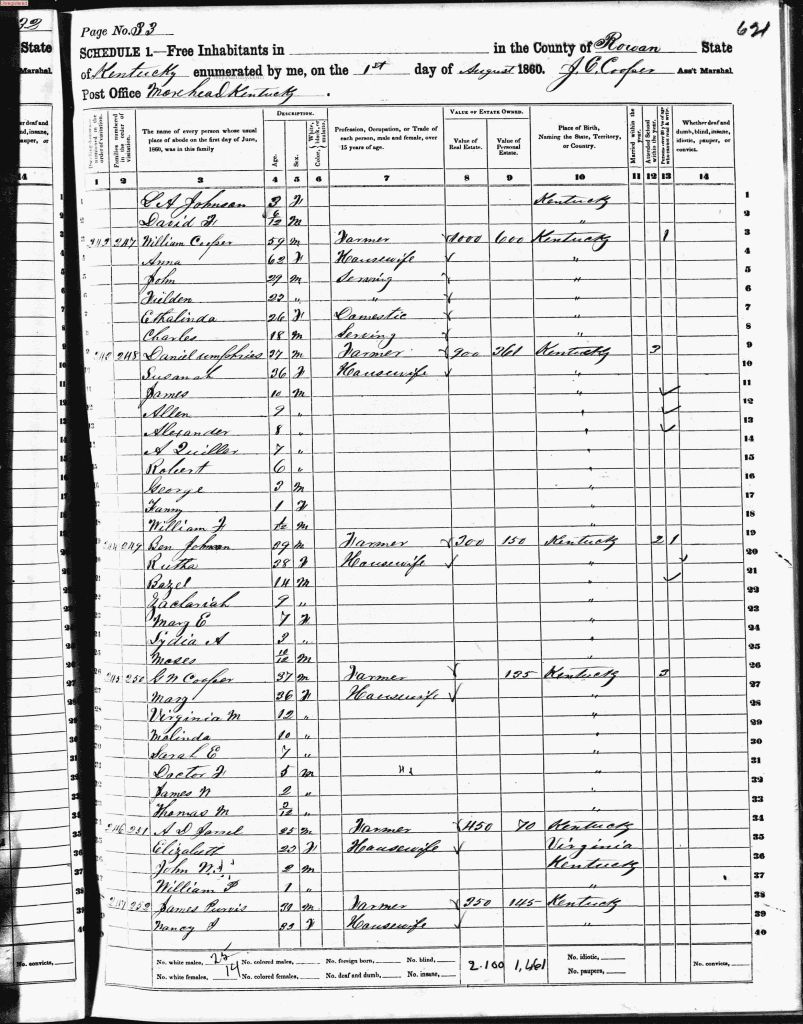 Page No. 83
621
SCHEDULE 1.—Free Inhabitants in in the County of Rowan State
of Kentucky enumerated by me, on the 1st day of August 1860. J. C. Cooper Ass't Marshal.
Post Office Morehead Kentucky.
State
Marshal.
DESCRIPTION.
VALUE OF ESTATE OWNED.
The name of every person whose usual place of abode on the first day of June, 1860, was in this family
Age.
Sex.
Profession, Occupation, or Trade of each person, male and female, over 15 years of age.
Value of Real Estate.
Value of Personal Estate.
Place of Birth, Naming the State, Territory, or Country.
Married within the year.
Attended School within the year.
Whether deaf and dumb, blind, insane, idiotic, pauper, or convict.
1 2 3 4 5 6 7 8 9 10 11 12 13 14
L A Johnson 3 F Kentucky 1
David F 6/12 M " 2
247 William Cooper 59 M Farmer 1000 600 Kentucky 1 3
Anna 62 F Housewife " 4
John 29 M Serving " 5
Fielden 23 " " " 6
Ethalinda 26 F Domestic " 7
Charles 18 M Serving " 8
248 Daniel umphries 37 M Farmer 200 361 Kentucky 3 9
Susanah 36 F Housewife " 10
James 10 M " 11
Allen 9 " " 12
Alexander 8 " " 13
A Quiller 7 " " 14
Robert 6 " " 15
George 3 M " 16
Fanny 1 F " 17
William F M " 18
249 Ben Johnson 39 M Farmer 200 150 Kentucky 2 1 19
Rutha 28 F Housewife " 20
Bazel 14 M " 21
Zachariah 9 " " 22
Mary E 7 F " 23
Lydia A 3 " " 24
Moses 10/12 M " 25
245 250 G W Cooper 37 M Farmer 125 Kentucky 3 26
Mary 36 F Housewife " 27
Virginia M 12 " " 28
Malinda 10 " " 29
Sarah E 7 " " 30
Doctor F 5 M " 31
James N 2 " " 32
Thomas M 2/12 " " 33
246 251 A D 25 M Farmer 450 70 Kentucky 34
Elizabeth 23 F Housewife Virginia 35
John 2 M Kentucky 36
William P 1 " " 37
252 James Purvis 30 M Farmer 250 145 Kentucky 38
Nancy J 33 F Housewife " 39
40
No. white males, No. colored males, No. foreign born, No. blind, No. idiotic, No. convicts,
No. white females, 14 No. colored females, No. deaf and dumb, No. insane, 2.100 1,461 No. paupers,
No. convicts,